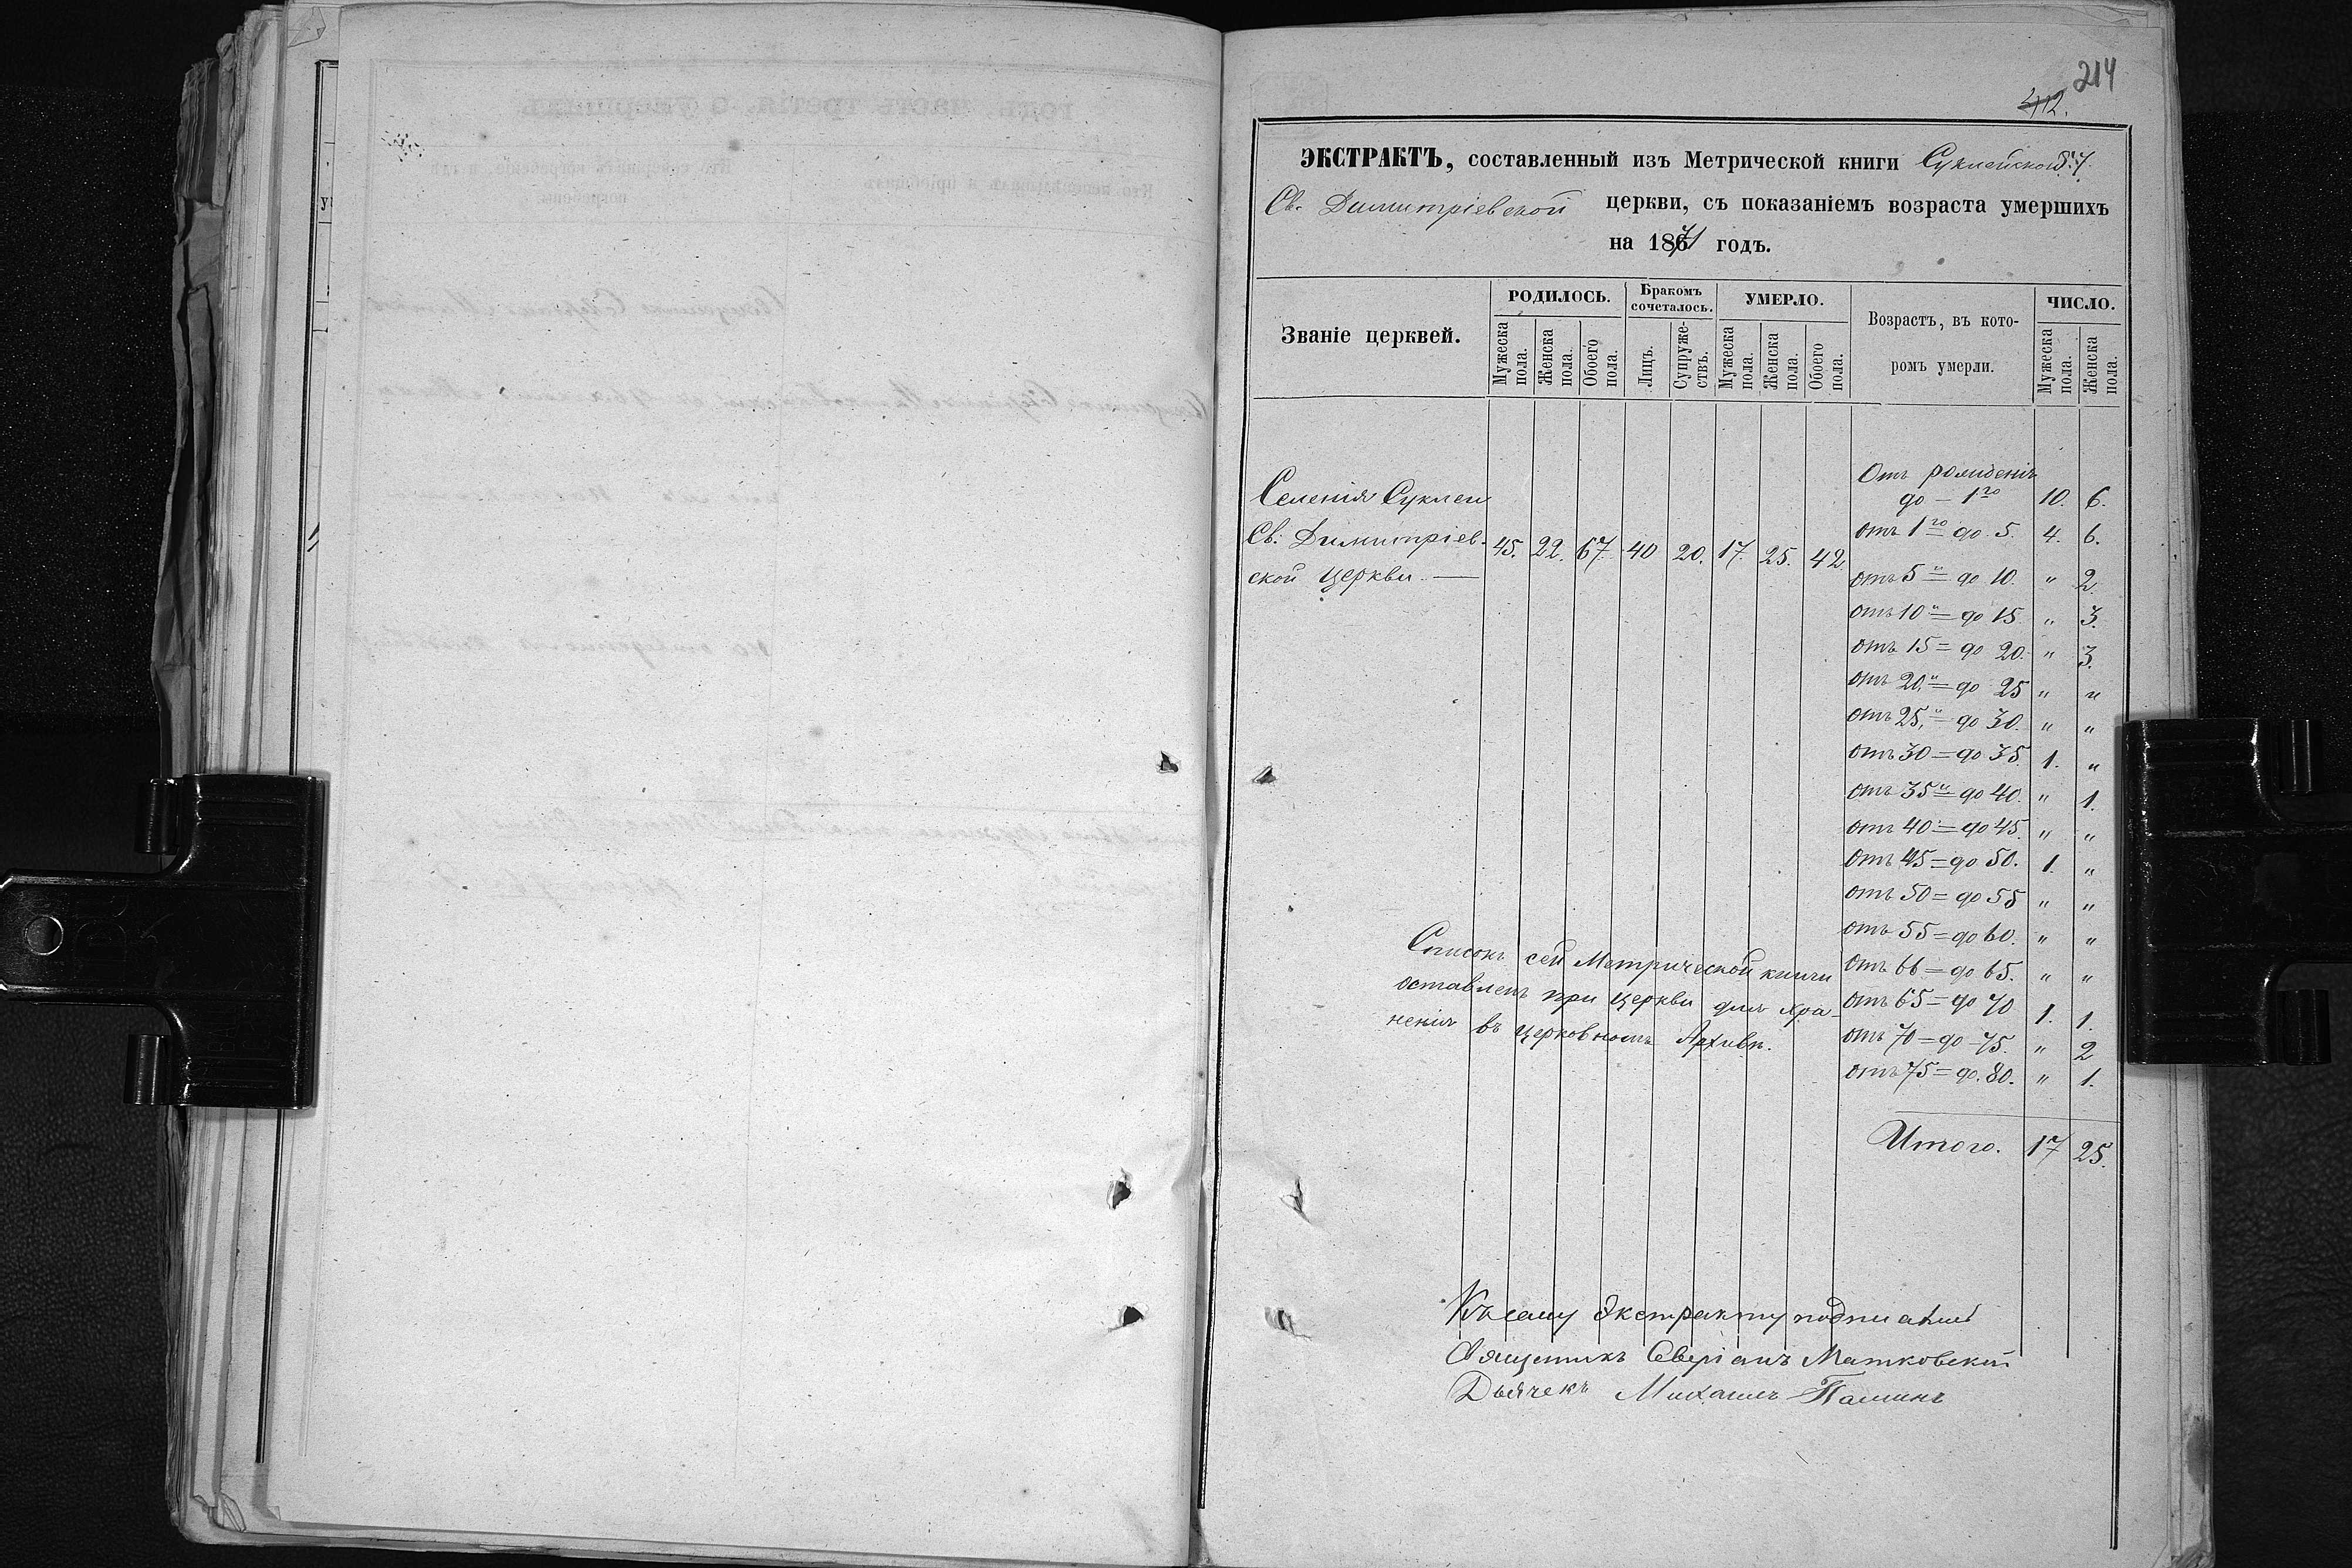 214
412.
ЭКСТРАКТЪ, составленный изъ Метрической книги Суклейской
Св. Димитріевской церкви, съ показаніемъ возраста умершихъ
на 1871 годъ.
Званіе церквей.
РОДИЛОСЬ.
Мужеска пола.
Женска пола.
Обоего пола.
Бракомъ сочеталось.
Лицъ.
Супружествъ.
УМЕРЛО.
Мужеска пола.
Женска пола.
Обоего пола.
Возрастъ, въ которомъ умерли.
ЧИСЛО.
Мужеска пола.
Женска пола.
Селенія Суклеи
Св. Димитріев-
ской церкви. —
45. 22. 67. 40 20. 17. 25. 42.
Отъ рожденія
до — 1го 10. 6.
отъ 1го до 5. 4. 6.
отъ 5 = до 10. " 2.
отъ 10 = до 15. " 3.
отъ 15 = до 20. " 3.
отъ 20 = до 25 " "
отъ 25 = до 30. " "
отъ 30 = до 35. 1. "
отъ 35 = до 40. " 1.
отъ 40 = до 45. " "
отъ 45 = до 50. 1. "
отъ 50 = до 55 " "
отъ 55 = до 60. " "
отъ 66 = до 65. " "
отъ 65 = до 70 1. 1.
отъ 70 = до 75. " 2
отъ 75 = до 80. " 1.
Итого. 17 25.
Списокъ сей Метрической книги
оставленъ при церкви для хра-
ненія въ церковномъ Архивѣ.
Къ сему Экстракту подписались
Священникъ Северіанъ Матковскій
Дьячекъ Михаилъ